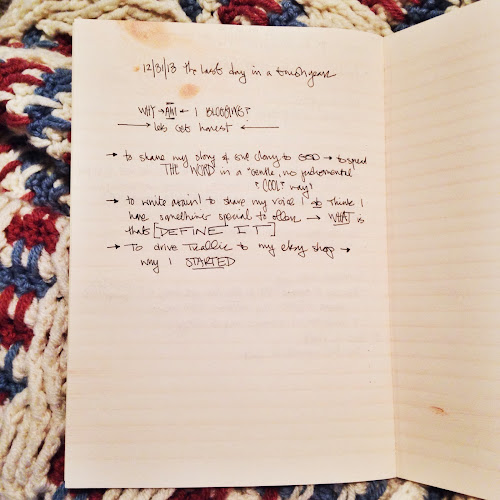 12/31/13 the last day in a tough year
WHY → AM ← I BLOGGING?
→ lets get honest ←
→ to share my story & give glory to GOD → to spread
THE WORD in a "gentle, no judgmental"
"COOL" way?
→ to write again! to share my voice I do think I
have something special to offer → WHAT is
that? [DEFINE IT]
→ To drive traffic to my etsy shop →
why I STARTED